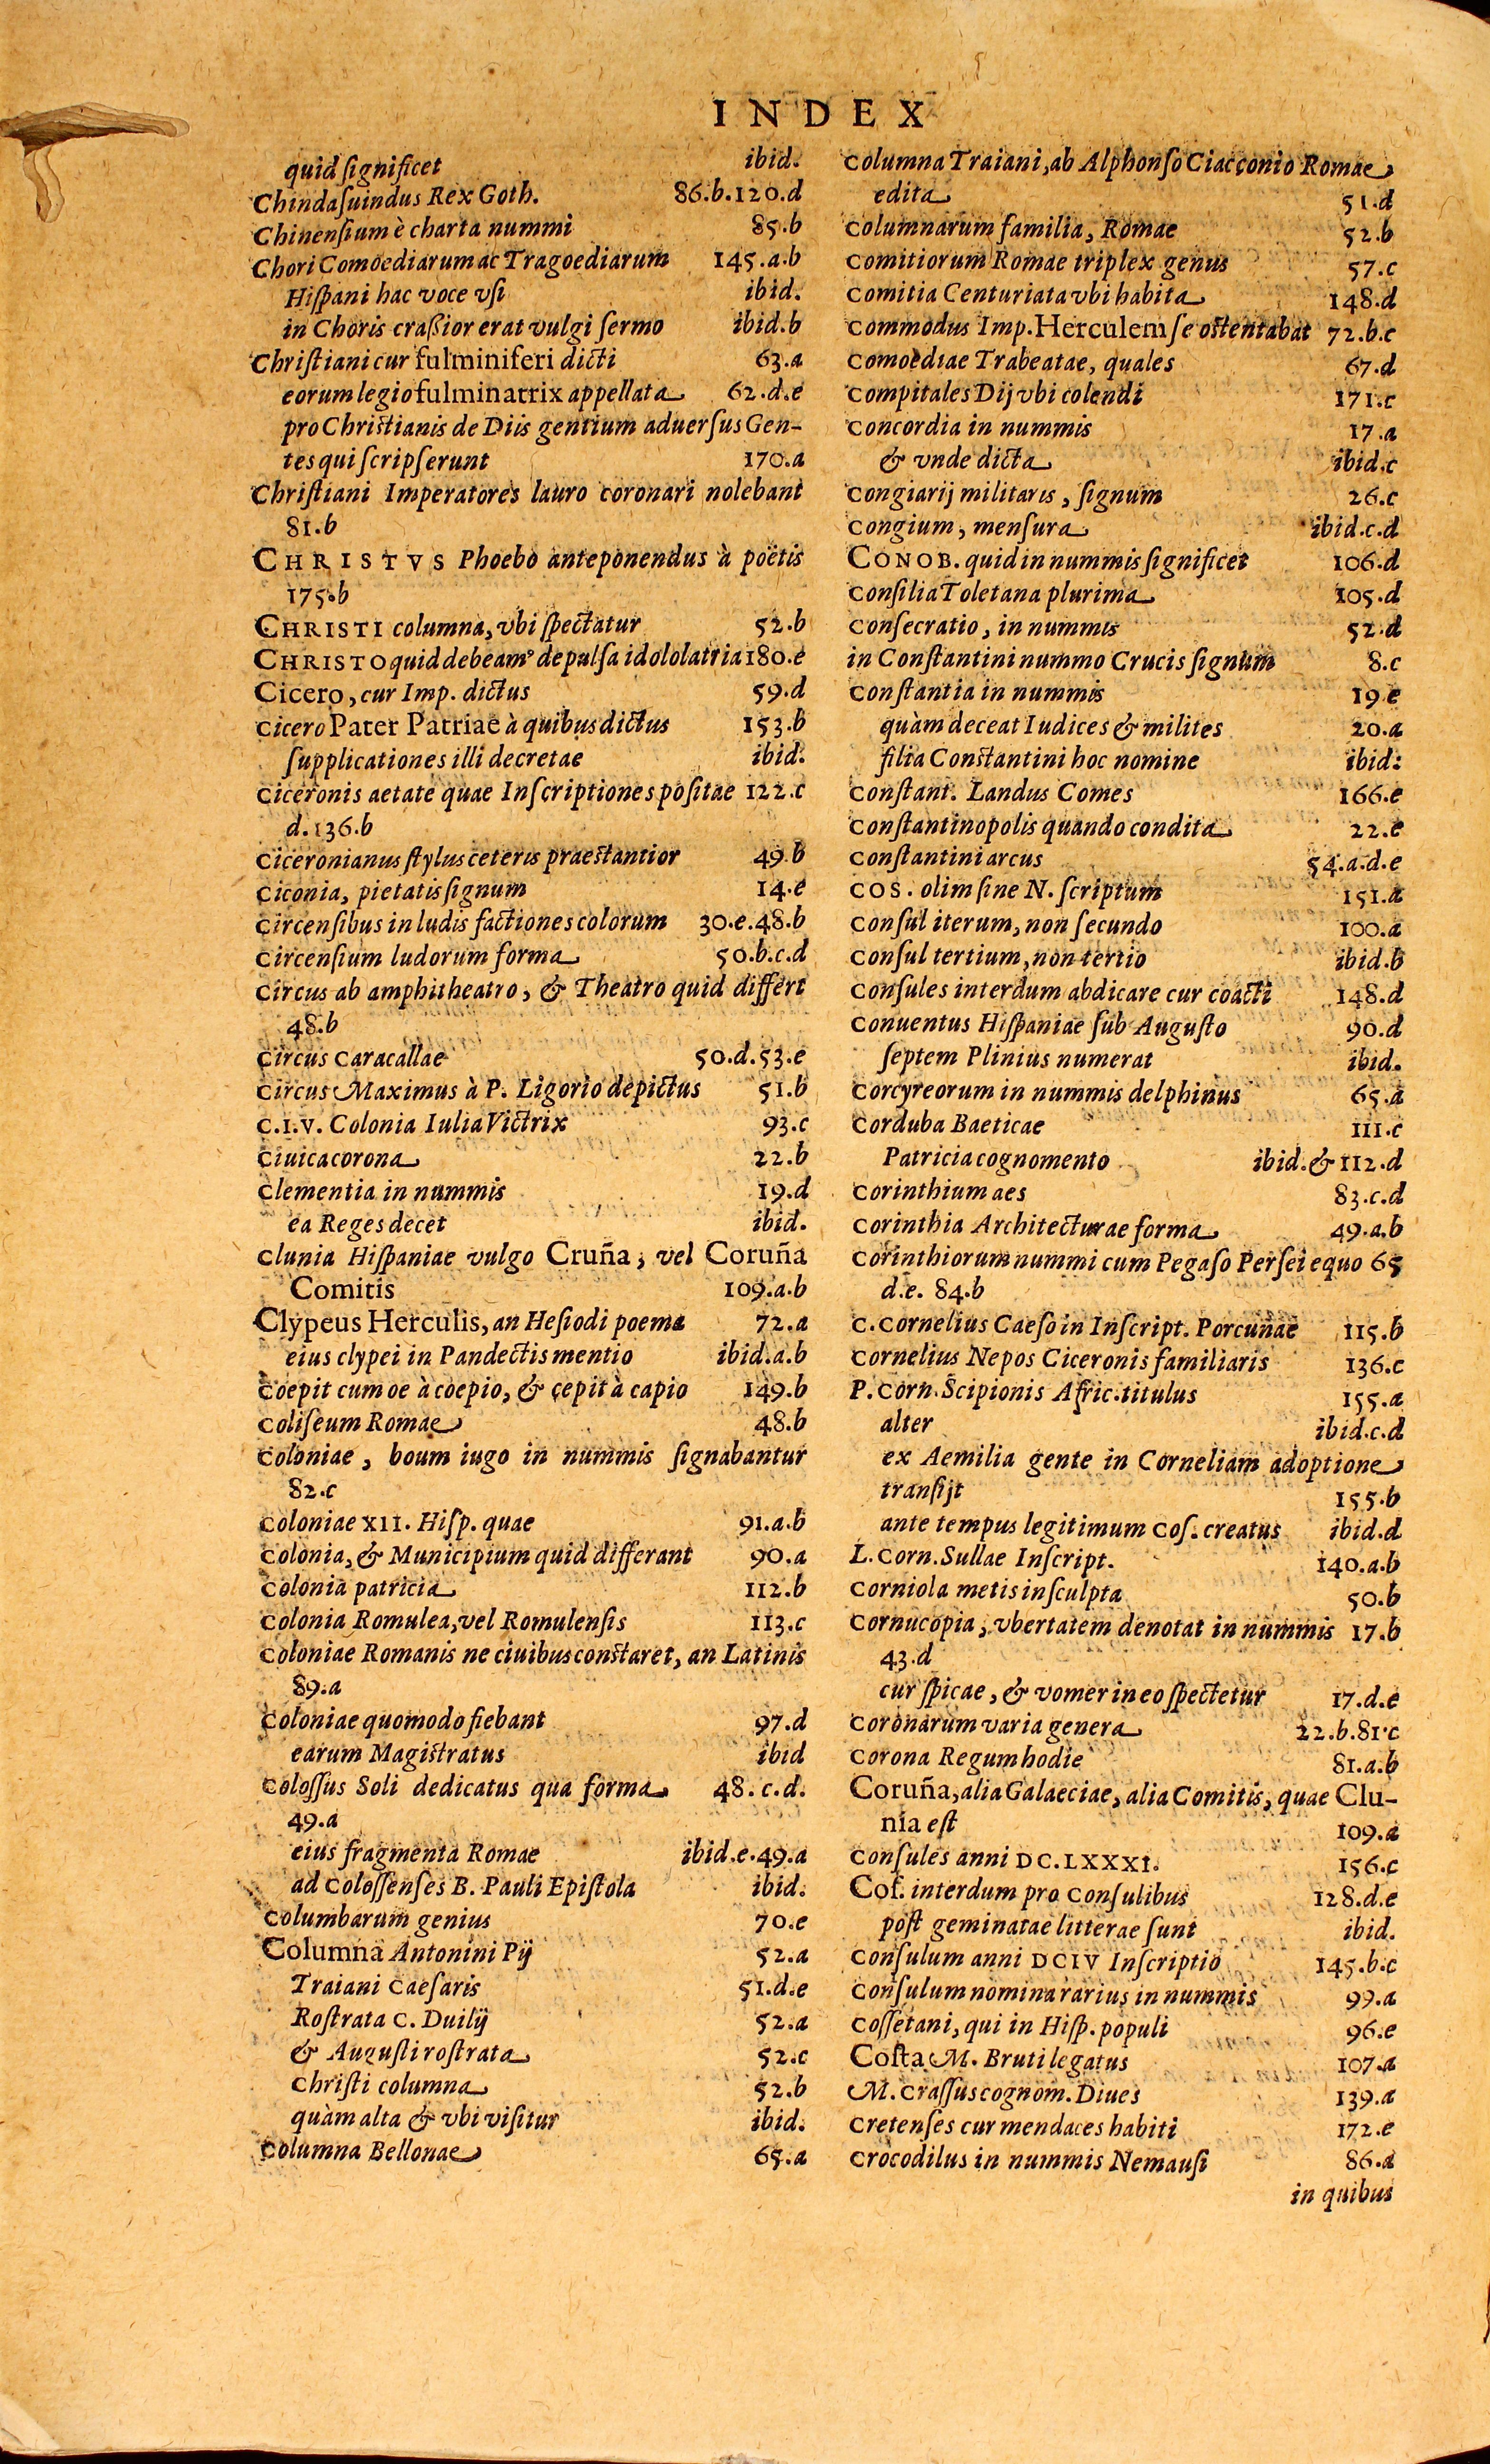 INDEX
quid ſignificet ibid.
Chindaſuindus Rex Goth. 86.b.120.d
Chinenſium è charta nummi 85.b
Chori Comoediarum ac Tragoediarum 145.a.b
Hiſpani hac voce vſi ibid.
in Choris craßior erat vulgi ſermo ibid.b
Chriſtiani cur fulminiferi dicti 63.a
eorum legio fulminatrix appellata 62.d.e
pro Chriſtianis de Diis gentium aduerſus Gen-
tes qui ſcripſerunt 170.a
Chriſtiani Imperatores lauro coronari nolebant
81.b
CHRISTVS Phoebo anteponendus à poëtis
175.b
CHRISTI columna, vbi ſpectatur 52.b
CHRISTO quid debeamꝰ depulſa idololatria 180.e
Cicero, cur Imp. dictus 59.d
Cicero Pater Patriae à quibus dictus 153.b
ſupplicationes illi decretae ibid.
Ciceronis aetate quae Inſcriptiones poſitae 122.c
d.136.b
Ciceronianus ſtylus ceteris praeſtantior 49.b
Ciconia, pietatis ſignum 14.e
Circenſibus in ludis factiones colorum 30.e.48.b
Circenſium ludorum forma 50.b.c.d
Circus ab amphitheatro, & Theatro quid differt
48.b
Circus Caracallae 50.d.53.e
Circus Maximus à P. Ligorio depictus 51.b
C.I.V. Colonia Iulia Victrix 93.c
Ciuica corona 22.b
Clementia in nummis 19.d
ea Reges decet ibid.
Clunia Hiſpaniae vulgo Cruña, vel Coruña
Comitis 109.a.b
Clypeus Herculis, an Heſiodi poema 72.a
eius clypei in Pandectis mentio ibid.a.b
Coepit cum oe à coepio, & cepit à capio 149.b
Coliſeum Romae 48.b
Coloniae, boum iugo in nummis ſignabantur
82.c
Coloniae XII. Hiſp. quae 91.a.b
Colonia, & Municipium quid differant 90.a
Colonia patricia 112.b
Colonia Romulea, vel Romulenſis 113.c
Coloniae Romanis ne ciuibus conſtaret, an Latinis
89.a
Coloniae quomodo fiebant 97.d
earum Magiſtratus ibid
Coloſſus Soli dedicatus qua forma 48.c.d.
49.a
eius fragmenta Romae ibid.e.49.a
ad Coloſſenſes B. Pauli Epiſtola ibid.
Columbarum genius 70.e
Columna Antonini Pij 52.a
Traiani Caeſaris 51.d.e
Roſtrata C. Duilij 52.a
& Auguſti roſtrata 52.c
Chriſti columna 52.b
quàm alta & vbi viſitur ibid.
Columna Bellonae 65.a
Columna Traiani, ab Alphonſo Ciacconio Romae
edita 51.d
Columnarum familia, Romae 52.b
Comitiorum Romae triplex genus 57.c
Comitia Centuriata vbi habita 148.d
Commodus Imp. Herculem ſe oſtentabat 72.b.c
Comoediae Trabeatae, quales 67.d
Compitales Dij vbi colendi 171.c
Concordia in nummis 17.a
& vnde dicta ibid.c
Congiarij militaris, ſignum 26.c
Congium, menſura ibid.c.d
CONOB. quid in nummis ſignificet 106.d
Conſilia Toletana plurima 105.d
Conſecratio, in nummis 52.d
in Conſtantini nummo Crucis ſignum 8.c
Conſtantia in nummis 19.e
quàm deceat Iudices & milites 20.a
filia Conſtantini hoc nomine ibid.
Conſtant. Landus Comes 166.e
Conſtantinopolis quando condita 22.e
Conſtantini arcus 54.a.d.e
COS. olim ſine N. ſcriptum 151.a
Conſul iterum, non ſecundo 100.a
Conſul tertium, non tertio ibid.b
Conſules interdum abdicare cur coacti 148.d
Conuentus Hiſpaniae ſub Auguſto 90.d
ſeptem Plinius numerat ibid.
Corcyreorum in nummis delphinus 65.a
Corduba Baeticae 111.c
Patricia cognomento ibid.& 112.d
Corinthium aes 83.c.d
Corinthia Architecturae forma 49.a.b
Corinthiorum nummi cum Pegaſo Perſei equo 65
d.e. 84.b
C. Cornelius Caeſo in Inſcript. Porcunae 115.b
Cornelius Nepos Ciceronis familiaris 136.c
P. Corn. Scipionis Afric. titulus 155.a
alter ibid.c.d
ex Aemilia gente in Corneliam adoptione
tranſijt 155.b
ante tempus legitimum Coſ. creatus ibid.d
L. Corn. Sullae Inſcript. 140.a.b
Corniola metis inſculpta 50.b
Cornucopia, vbertatem denotat in nummis 17.b
43.d
cur ſpicae, & vomer in eo ſpectetur 17.d.e
Coronarum varia genera 22.b.81.c
Corona Regum hodie 81.a.b
Coruña, alia Galaeciae, alia Comitis, quae Clu-
nia eſt 109.a
Conſules anni DC.LXXXI. 156.c
Coſ. interdum pro Conſulibus 128.d.e
poſt geminatae litterae ſunt ibid.
Conſulum anni DCIV Inſcriptio 145.b.c
Conſulum nomina rarius in nummis 99.a
Coſſetani, qui in Hiſp. populi 96.e
Coſta M. Bruti legatus 107.a
M. Craſſus cognom. Diues 139.a
Cretenſes cur mendaces habiti 172.e
Crocodilus in nummis Nemauſi 86.a
in quibus